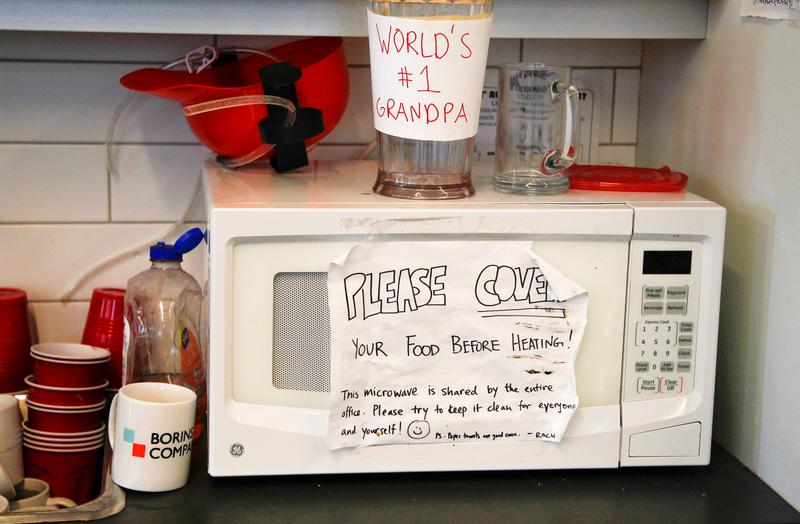 WORLD'S
#1
GRANDPA
PLEASE COVER
YOUR FOOD BEFORE HEATING!
This microwave is shared by the entire
office. Please try to keep it clean for everyone
and yourself! PS. Paper towels are good cover. - RACH
BORINS
COMPA
GE
Pre-set Meals Popcorn
Beverage Reheat
Express Cook
1 2 3 Time Cook
4 5 6 Defrost
7 8 9 Clock
Power Level 0 Add 30 Sec Timer
Start Pause Clear Off